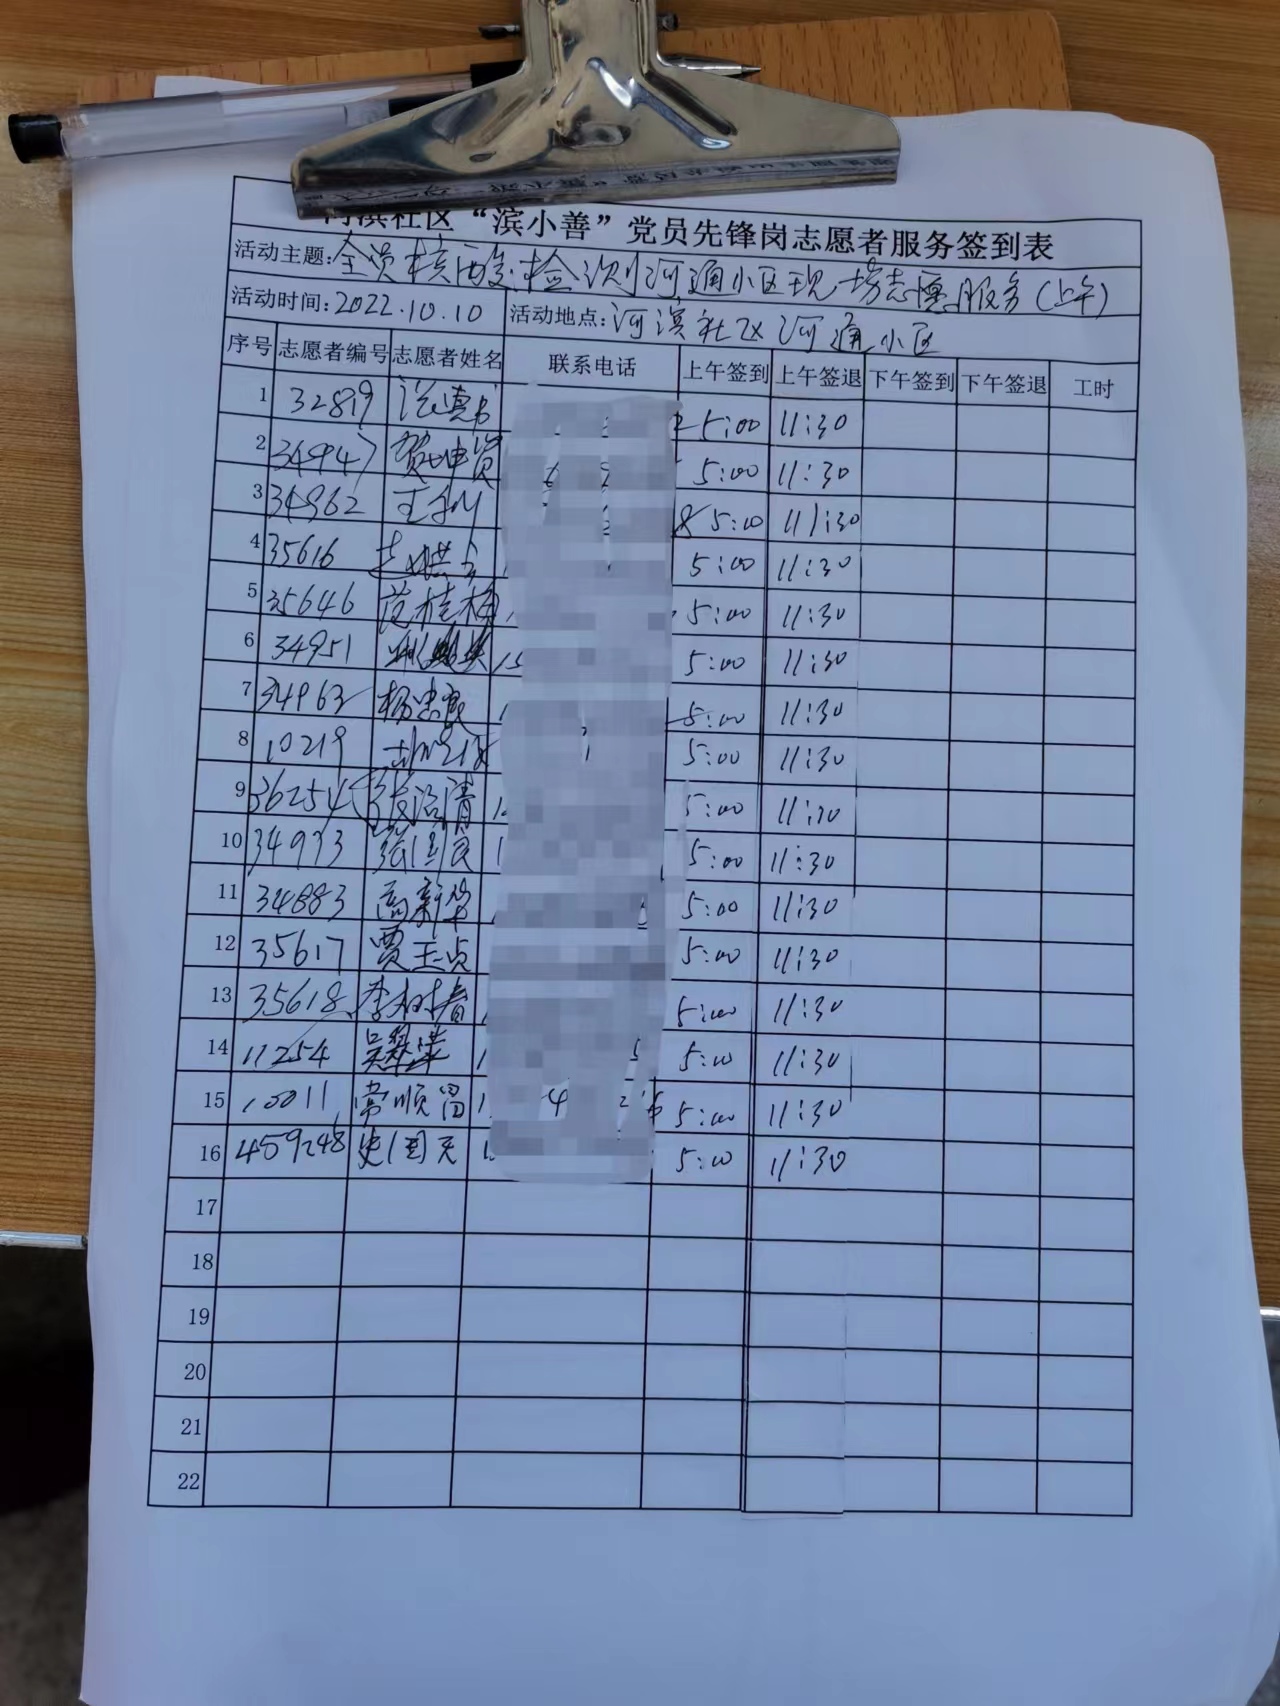 河滨社区“滨小善”党员先锋岗志愿者服务签到表
活动主题:全员核酸检测河通小区现场志愿服务(上午)
活动时间:2022.10.10 活动地点:河滨社区河通小区
序号 志愿者编号 志愿者姓名 联系电话 上午签到 上午签退 下午签到 下午签退 工时
1 32819 5:00 11:30
2 34947 贺坤贤 5:00 11:30
3 34962 5:00 11:30
4 35616 5:00 11:30
5 35646 范桂梅 5:00 11:30
6 34951 5:00 11:30
7 34963 杨忠良 5:00 11:30
8 10219 5:00 11:30
9 36254 5:00 11:30
10 34933 张国良 5:00 11:30
11 34883 高新华 5:00 11:30
12 35617 贾玉贞 5:00 11:30
13 35618 李树春 5:00 11:30
14 11254 5:00 11:30
15 10011 常顺昌 5:00 11:30
16 459248 史国天 5:00 11:30
17
18
19
20
21
22